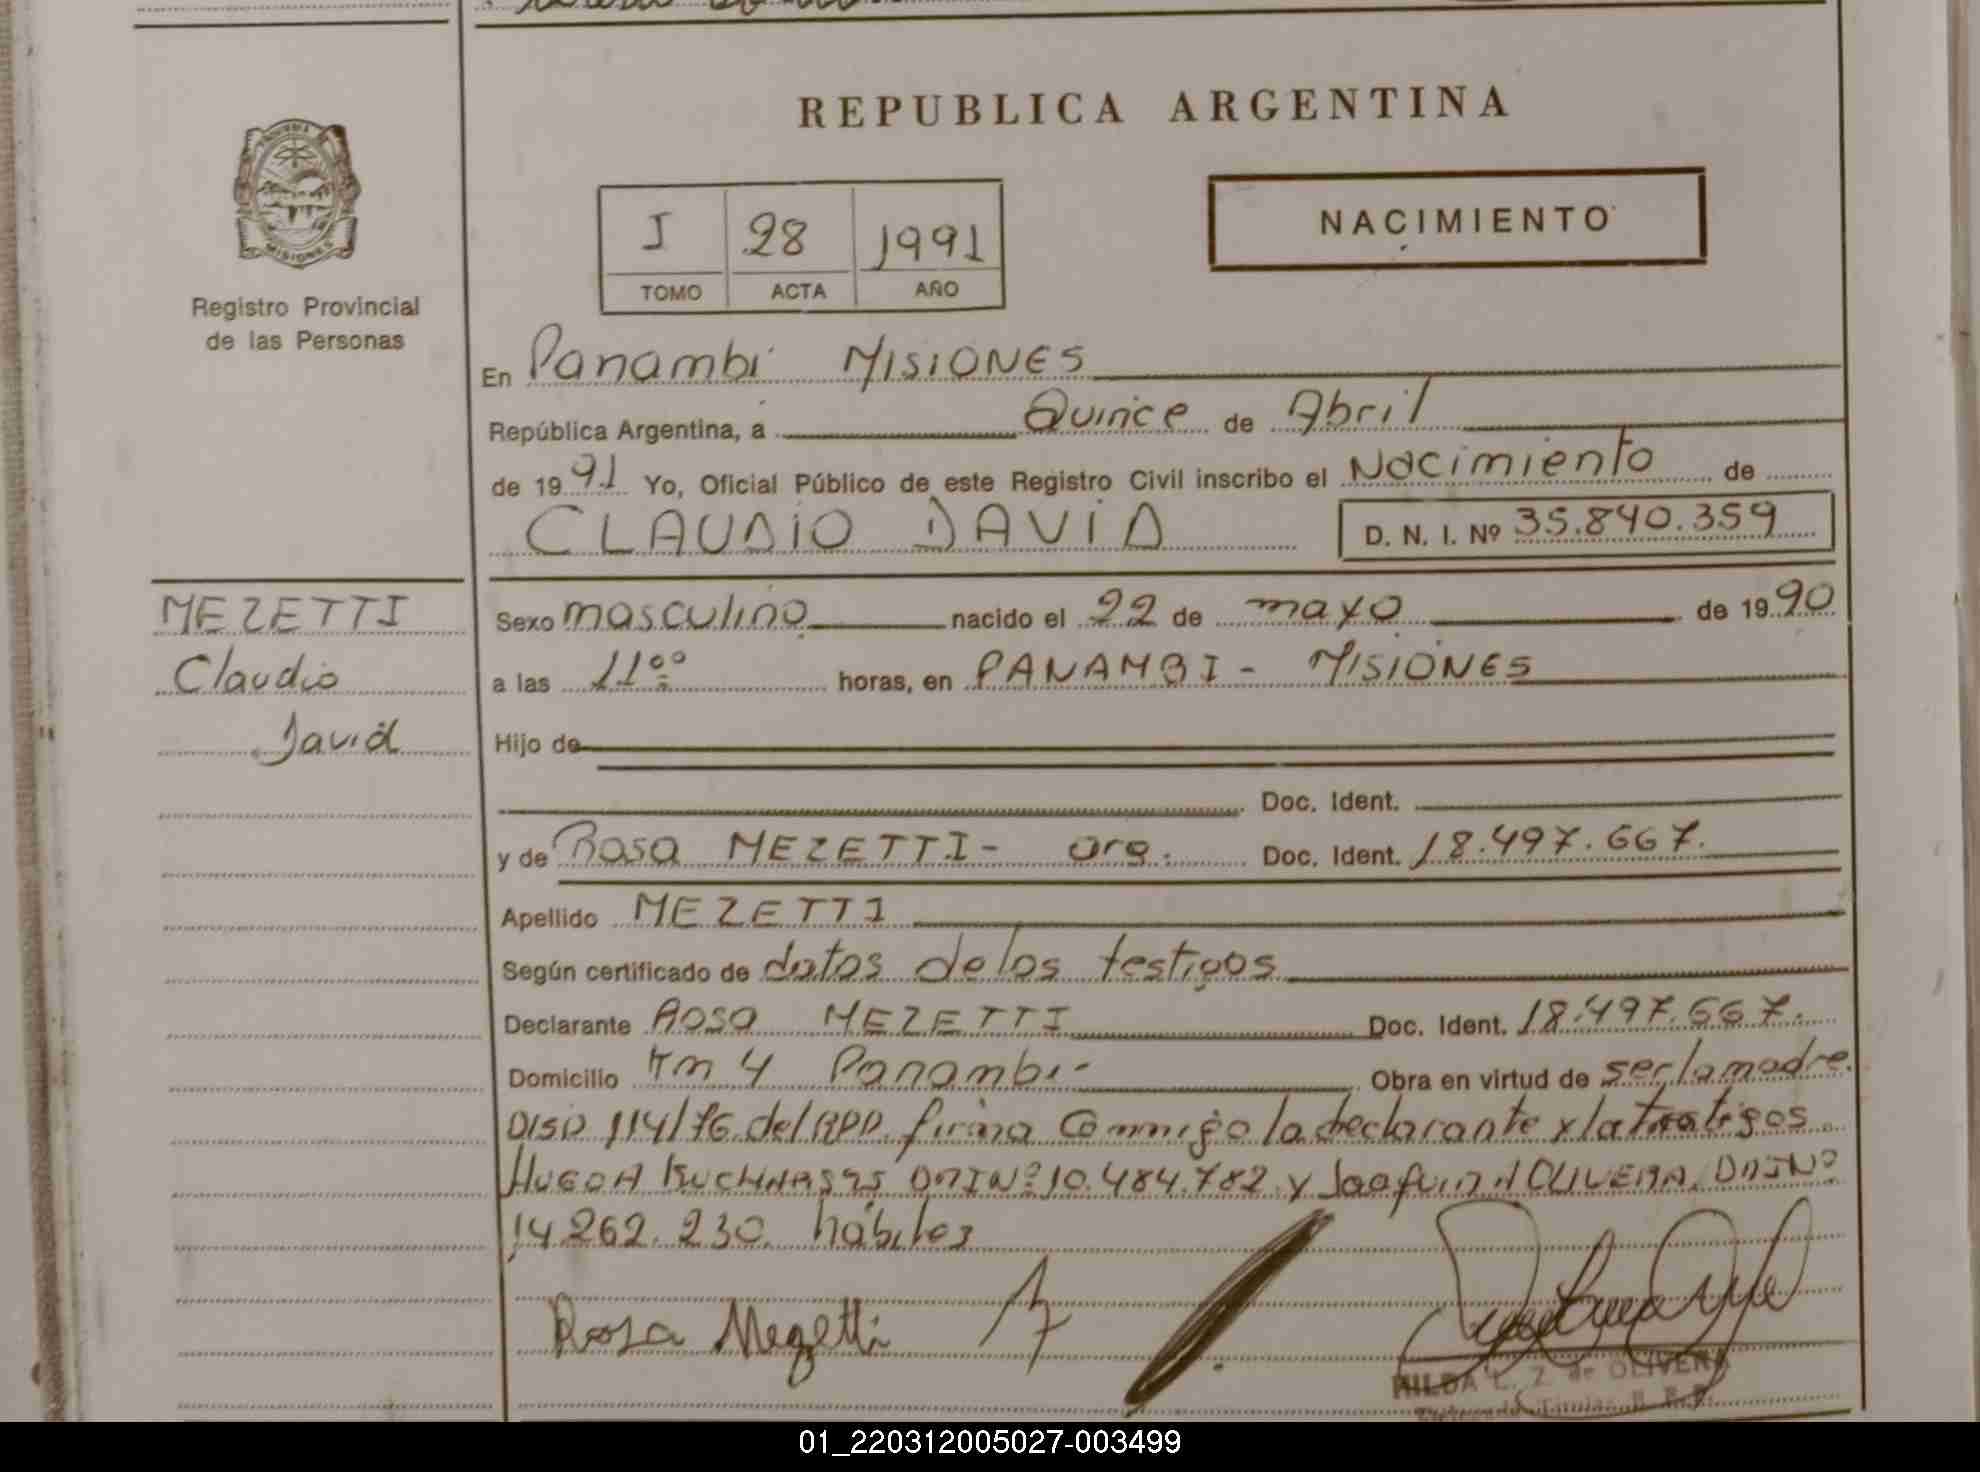 REPUBLICA ARGENTINA
MISIONES
Registro Provincial
de las Personas
I 28 1991
TOMO ACTA AÑO
NACIMIENTO
En Panambi MISIONES
República Argentina, a Quince de Abril
de 1991 Yo, Oficial Público de este Registro Civil inscribo el Nacimiento de
CLAUDIO DAVID D. N. I. Nº 35.840.359
MEZETTI
Claudio
David
Sexo masculino nacido el 22 de mayo de 1990
a las 11ºº horas, en PANAMBI - MISIONES
Hijo de
Doc. Ident.
y de Rosa MEZETTI - arg. Doc. Ident. 18.497.667.
Apellido MEZETTI
Según certificado de datos de los testigos
Declarante Rosa MEZETTI Doc. Ident. 18.497.667.
Domicilio Km 4 Panambi - Obra en virtud de ser la madre.
DISP. 114/76 del RPP. firma Conmigo la declarante y testigos
HUGO A DNI Nº 10.484.782 y Joaquin A OLIVERA. DNI Nº
14.262.230. hábiles
Rosa Mezetti
HILDA L. Z. de OLIVERA
Titular R. P. P.
01_220312005027-003499